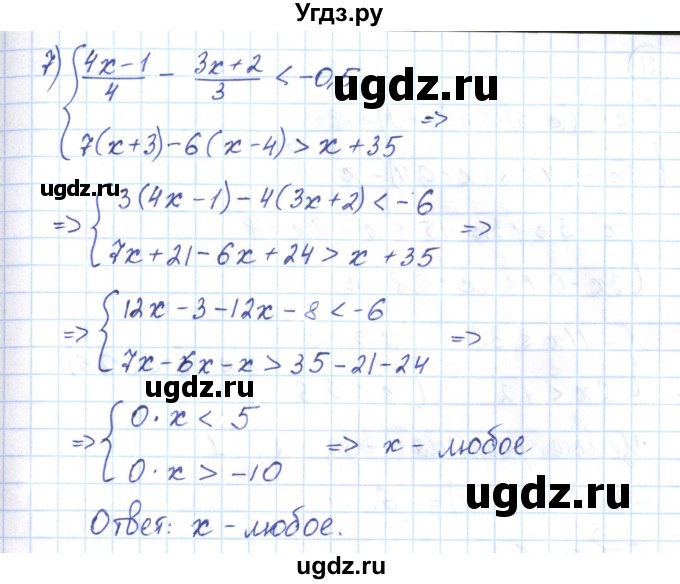 Угдз.ру
7) { (4x-1)/4 - (3x+2)/3 < -0,5
7(x+3)-6(x-4) > x+35 =>
ugdz.ru
ugdz.ru
=> { 3(4x-1)-4(3x+2) < -6 =>
7x+21-6x+24 > x+35
=> { 12x-3-12x-8 < -6 =>
7x-6x-x > 35-21-24
ugdz.ru
=> { 0·x < 5 => x - любое
0·x > -10
ugdz.ru
Ответ: x - любое.
ugdz.ru